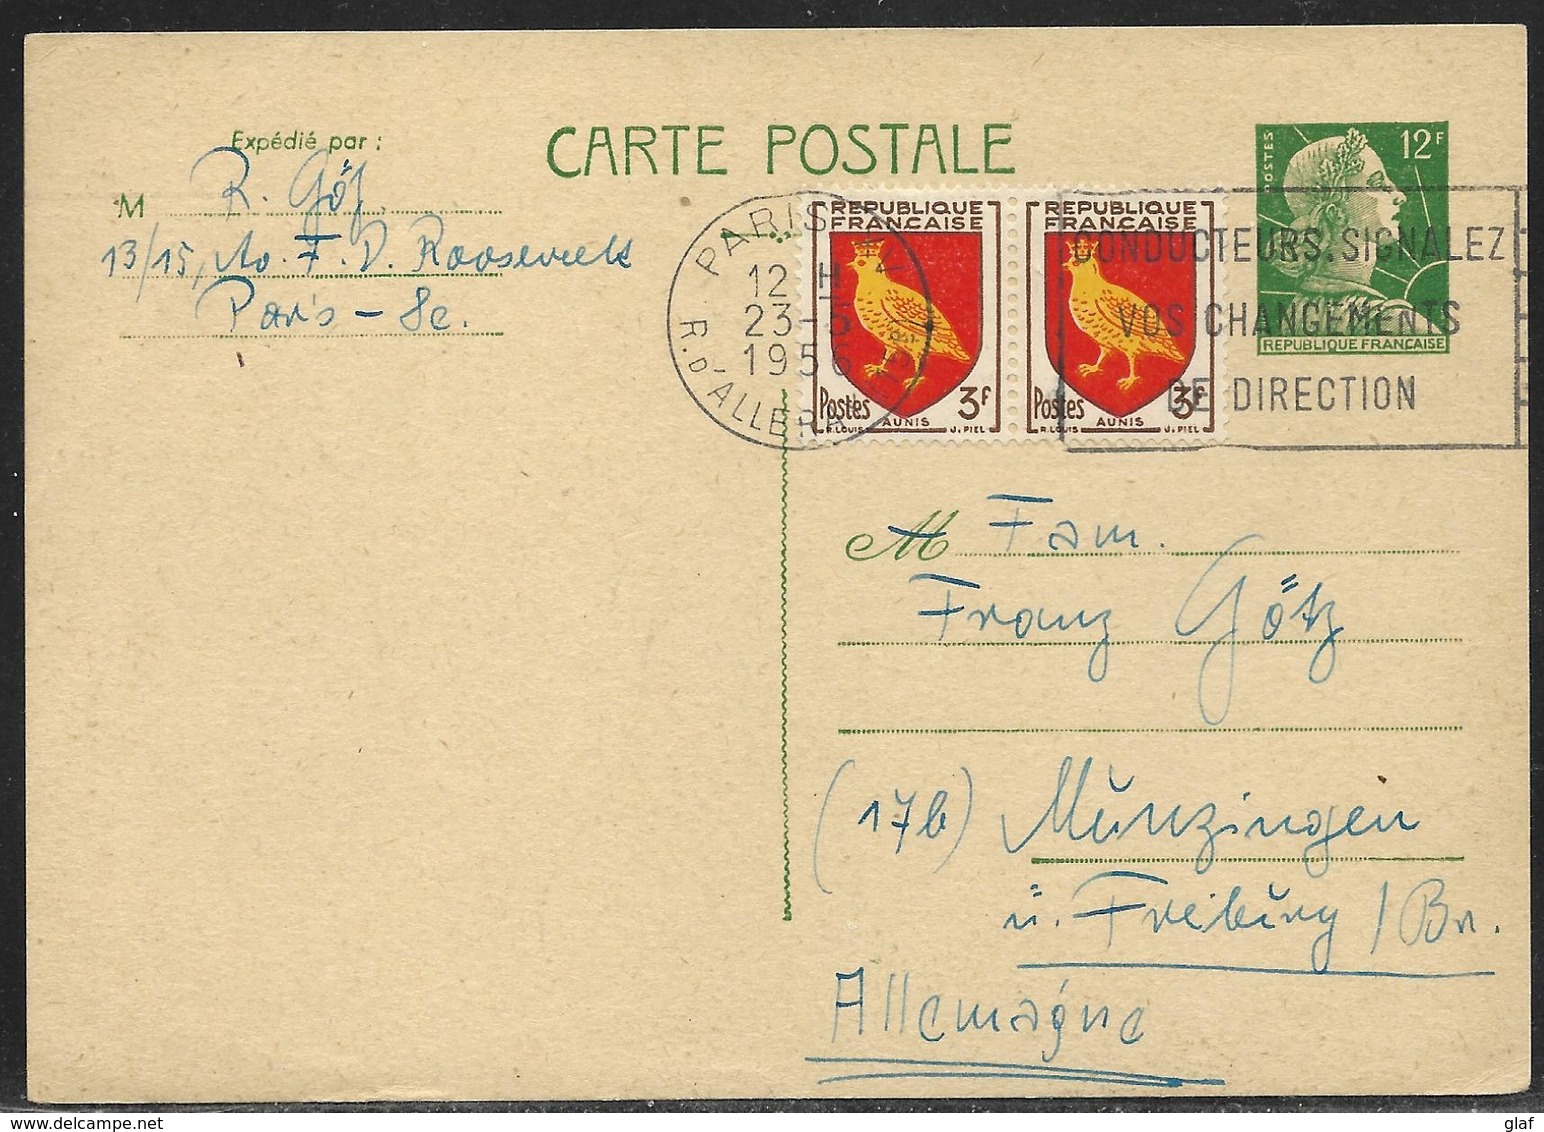 CARTE POSTALE
Expédié par :
M R. Götz
13/15, Av. F. D. Roosevelt
Paris - 8e.
POSTES 12F
REPUBLIQUE FRANÇAISE
REPUBLIQUE
FRANÇAISE
Postes 3F
AUNIS
R. LOUIS J. PIEL
REPUBLIQUE
FRANÇAISE
Postes 3F
AUNIS
R. LOUIS J. PIEL
PARIS XV
12 H
23-5
1956
R. D'ALLERAY (15e)
CONDUCTEURS. SIGNALEZ
VOS CHANGEMENTS
DE DIRECTION
M Fam.
Franz Götz
(17b) Munzingen
ü. Freiburg / Br.
Allemagne
glaf